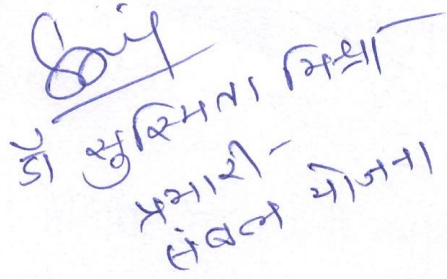 डॉ सुस्मिता मिश्रा
प्रभारी
संबल योजना